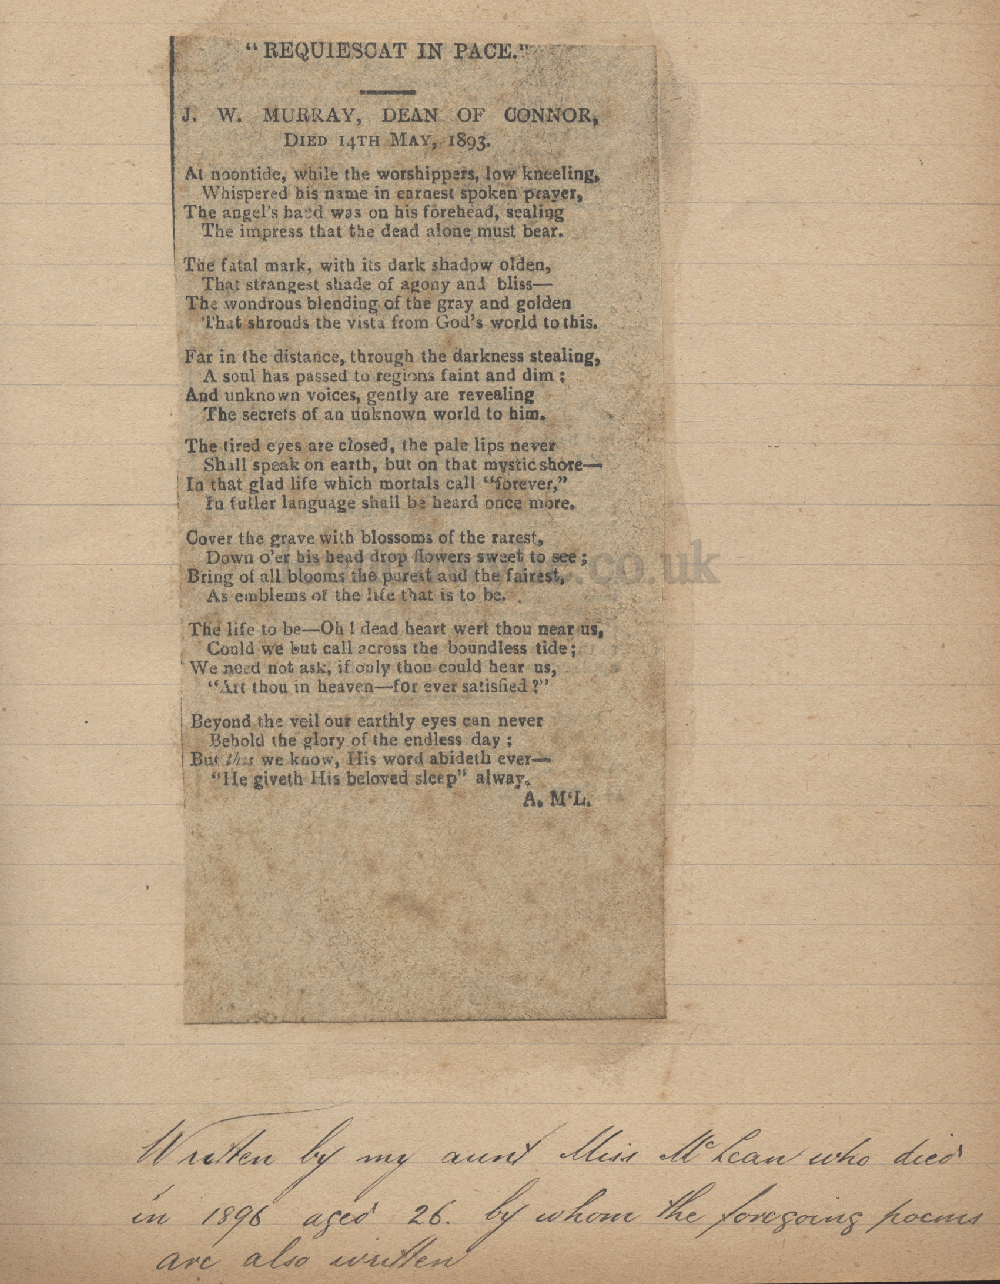 "REQUIESCAT IN PACE."
J. W. MURRAY, DEAN OF CONNOR,
DIED 14TH MAY, 1893.
At noontide, while the worshippers, low kneeling,
Whispered his name in earnest spoken prayer,
The angel's hand was on his forehead, sealing
The impress that the dead alone must bear.
The fatal mark, with its dark shadow olden,
That strangest shade of agony and bliss—
The wondrous blending of the gray and golden
That shrouds the vista from God's world to this.
Far in the distance, through the darkness stealing,
A soul has passed to regions faint and dim;
And unknown voices, gently are revealing
The secrets of an unknown world to him.
The tired eyes are closed, the pale lips never
Shall speak on earth, but on that mystic shore—
In that glad life which mortals call "forever,"
In fuller language shall be heard once more.
Cover the grave with blossoms of the rarest,
Down o'er his head drop flowers sweet to see;
Bring of all blooms the purest and the fairest,
As emblems of the life that is to be.
The life to be—Oh! dead heart wert thou near us,
Could we but call across the boundless tide;
We need not ask, if only thou could hear us,
"Art thou in heaven—for ever satisfied?"
Beyond the veil our earthly eyes can never
Behold the glory of the endless day;
But this we know, His word abideth ever—
"He giveth His beloved sleep" alway.
A. M'L.
.co.uk
Written by my aunt Miss McLean who died
in 1896 aged 26. by whom the foregoing poems
are also written